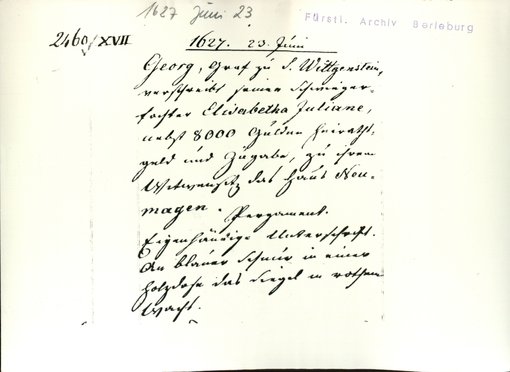 1627 Juni 23
Fürstl. Archiv Berleburg
2460/XVII
1627. 23. Juni
Georg, Graf zu S. Wittgenstein,
verschreibt seiner Schwieger-
tochter Elisabetha Juliane,
nebst 8000 Gulden Heiraths-
geld und Zugabe, zu ihrem
Witwensitz das Haus Neu-
magen. Pergament.
Eigenhändige Unterschrift.
An blauer Schnur in einer
Holzdose das Siegel in rothem
Wachs.